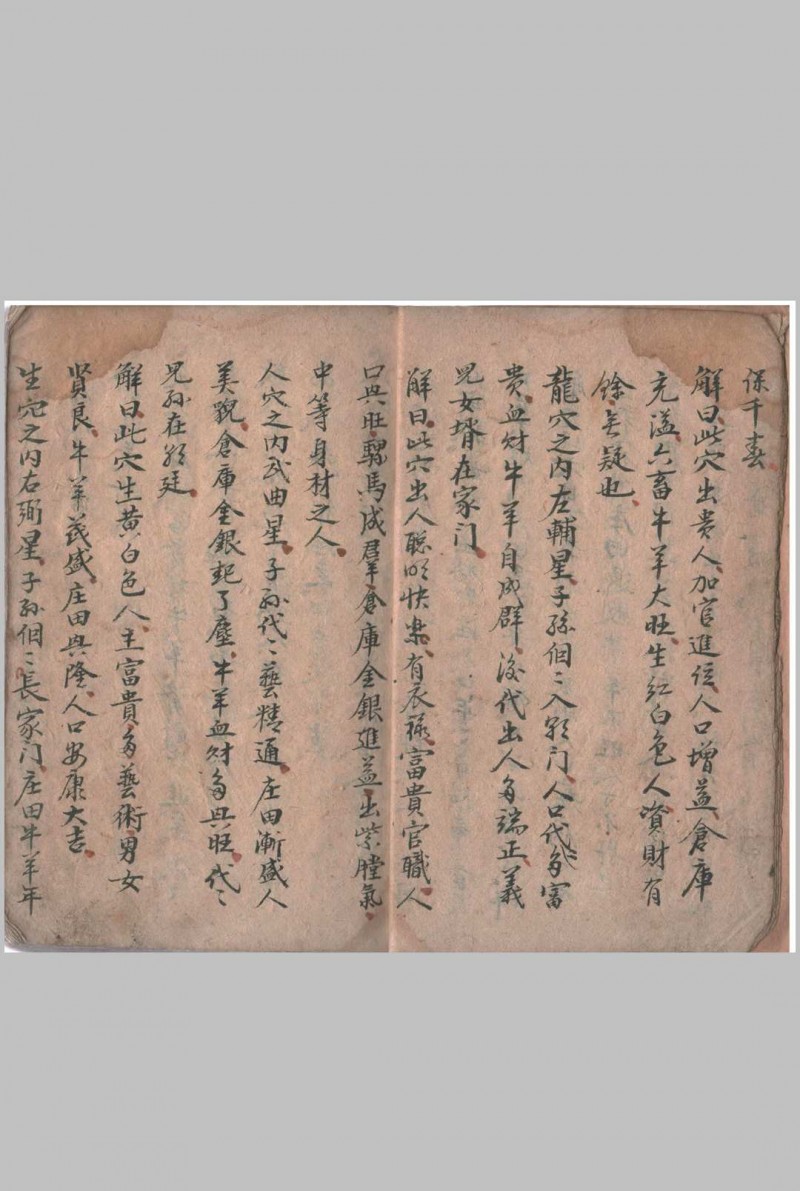 保千春
解曰此穴出贵人加官進位人口增益倉庫
充溢六畜牛羊大旺生紅白色人資財有
餘无疑也
龍穴之内左輔星子孫個〻入朝门人口代〻多富
贵血财牛羊自成群後代出人多端正義
兒女壻在家门
解曰此穴出人聪明快樂有衣禄富貴官職人
口興旺騾馬成羣倉庫金銀進益出紫膛氣
中等身材之人
人穴之内武曲星子孙代〻藝精通庄田漸盛人
美貌倉庫金銀起了塵牛羊血财多興旺代〻
兒孙在朝廷
解曰此穴生黄白色人主富貴多藝術男女
賢良牛羊茂盛庄田興隆人口安康大吉
生穴之内右弼星子孙個〻長家门庄田牛羊年